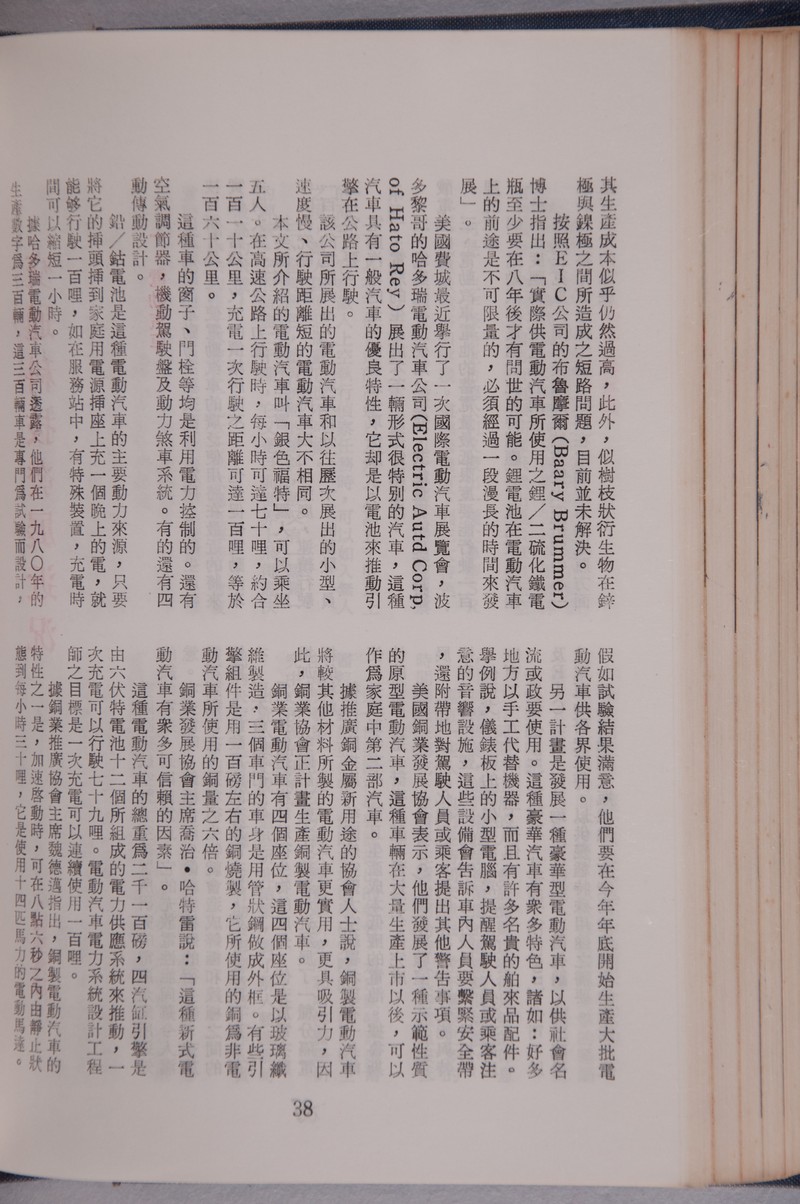 其生產成本似乎仍然過高，此外，似樹枝狀衍生物在鋅
極與鎳極之間所造成之短路問題，目前並未解決。
按照ＥＩＣ公司的布魯摩爾 (Baary Brummer)
博士指出：「實際供電動汽車所使用之鋰／二硫化鐵電
瓶至少要在八年後才有問世的可能。鋰電池在電動汽車
上的前途是不可限量的，必須經過一段漫長的時間來發
展」。
美國費城最近舉行了一次國際電動汽車展覽會，波
多黎哥的哈多瑞電動汽車公司 (Electric Autd Corp.
of Hato Rey) 展出了一輛形式很特別的汽車，這種
汽車具有一般汽車的優良特性，它却是以電池來推動引
擎在公路上行駛。
該公司所展出的電動汽車和以往歷次展出的小型、
速度慢、行駛距離短的電動汽車大不相同。
本文所介紹的電動汽車叫「銀色福特」，可以乘坐
五人。在高速公路上行駛時，每小時可達七十哩，約合
一百一十公里，充電一次行駛之距離可達一百哩，等於
一百六十公里。
這種車的窗子、門栓等均是利用電力控制的。還有
空氣調節器，機動駕駛盤及動力煞車系統。有的還有四
動傳動設計。
鉛／鈷電池是這種電動汽車的主要動力來源，只要
將它的揷頭揷到家庭用電源揷座上充一個晚上的電，就
能够行駛一百哩，如在服務站中，有特殊裝置，充電時
間可以縮短一小時。
據哈多瑞電動汽車公司透露，他們在一九八〇年的
生產數字爲三百輛，這三百輛車是專門爲試驗而設計，
假如試驗結果滿意，他們要在今年年底開始生產大批電
動汽車供各界使用。
另一計畫是發展一種豪華型電動汽車，以供社會名
流或政要使用。這種豪華汽車有衆多特色，諸如：好多
地方以手工代替機器，而且有許多名貴的舶來品配件。
舉例說，儀錶板上的小型電腦，提醒駕駛人員或乘客注
意的音響設施，這些設備會告訴車內人員要繫緊安全帶
，還附帶地對駕駛人員或乘客提出其他警告事項。
美國銅業發展協會表示，他們發展了一種示範性質
的原型電動汽車，這種車輛在大量生產上市以後，可以
作爲家庭中第二部汽車。
據推廣銅金屬新用途的協會人士說，銅製電動汽車
將較其他材料所製的電動汽車更實用，更具吸引力，因
此，銅業協會正計畫生產銅製電動汽車。
銅業電動汽車有四個座位，這四個座位是以玻璃纖
維製造，三個車門的車身是用管狀鋼做成外框。有些引
擎組件是用一百磅左右的銅燒製，它所使用的銅爲非電
動汽車所使用的銅量之六倍。
銅業發展協會主席喬治・哈特雷說：「這種新式電
動汽車有衆多可信賴的因素」。
這種電動汽車的總重爲二千一百磅，四汽缸引擎是
由六伏特電池十二個所組成的電力供應系統來推動，一
次充電可以行駛七十九哩。電動汽車電力系統設計工程
師之目標是一次充電可以連續使用一百哩。
據銅業推廣協會主席魏德邁指出，銅製電動汽車的
特性之一是，加速啓動時，可在八點六秒之內由靜止狀
態到每小時三十哩，它是使用十四匹馬力的電動馬達。
38